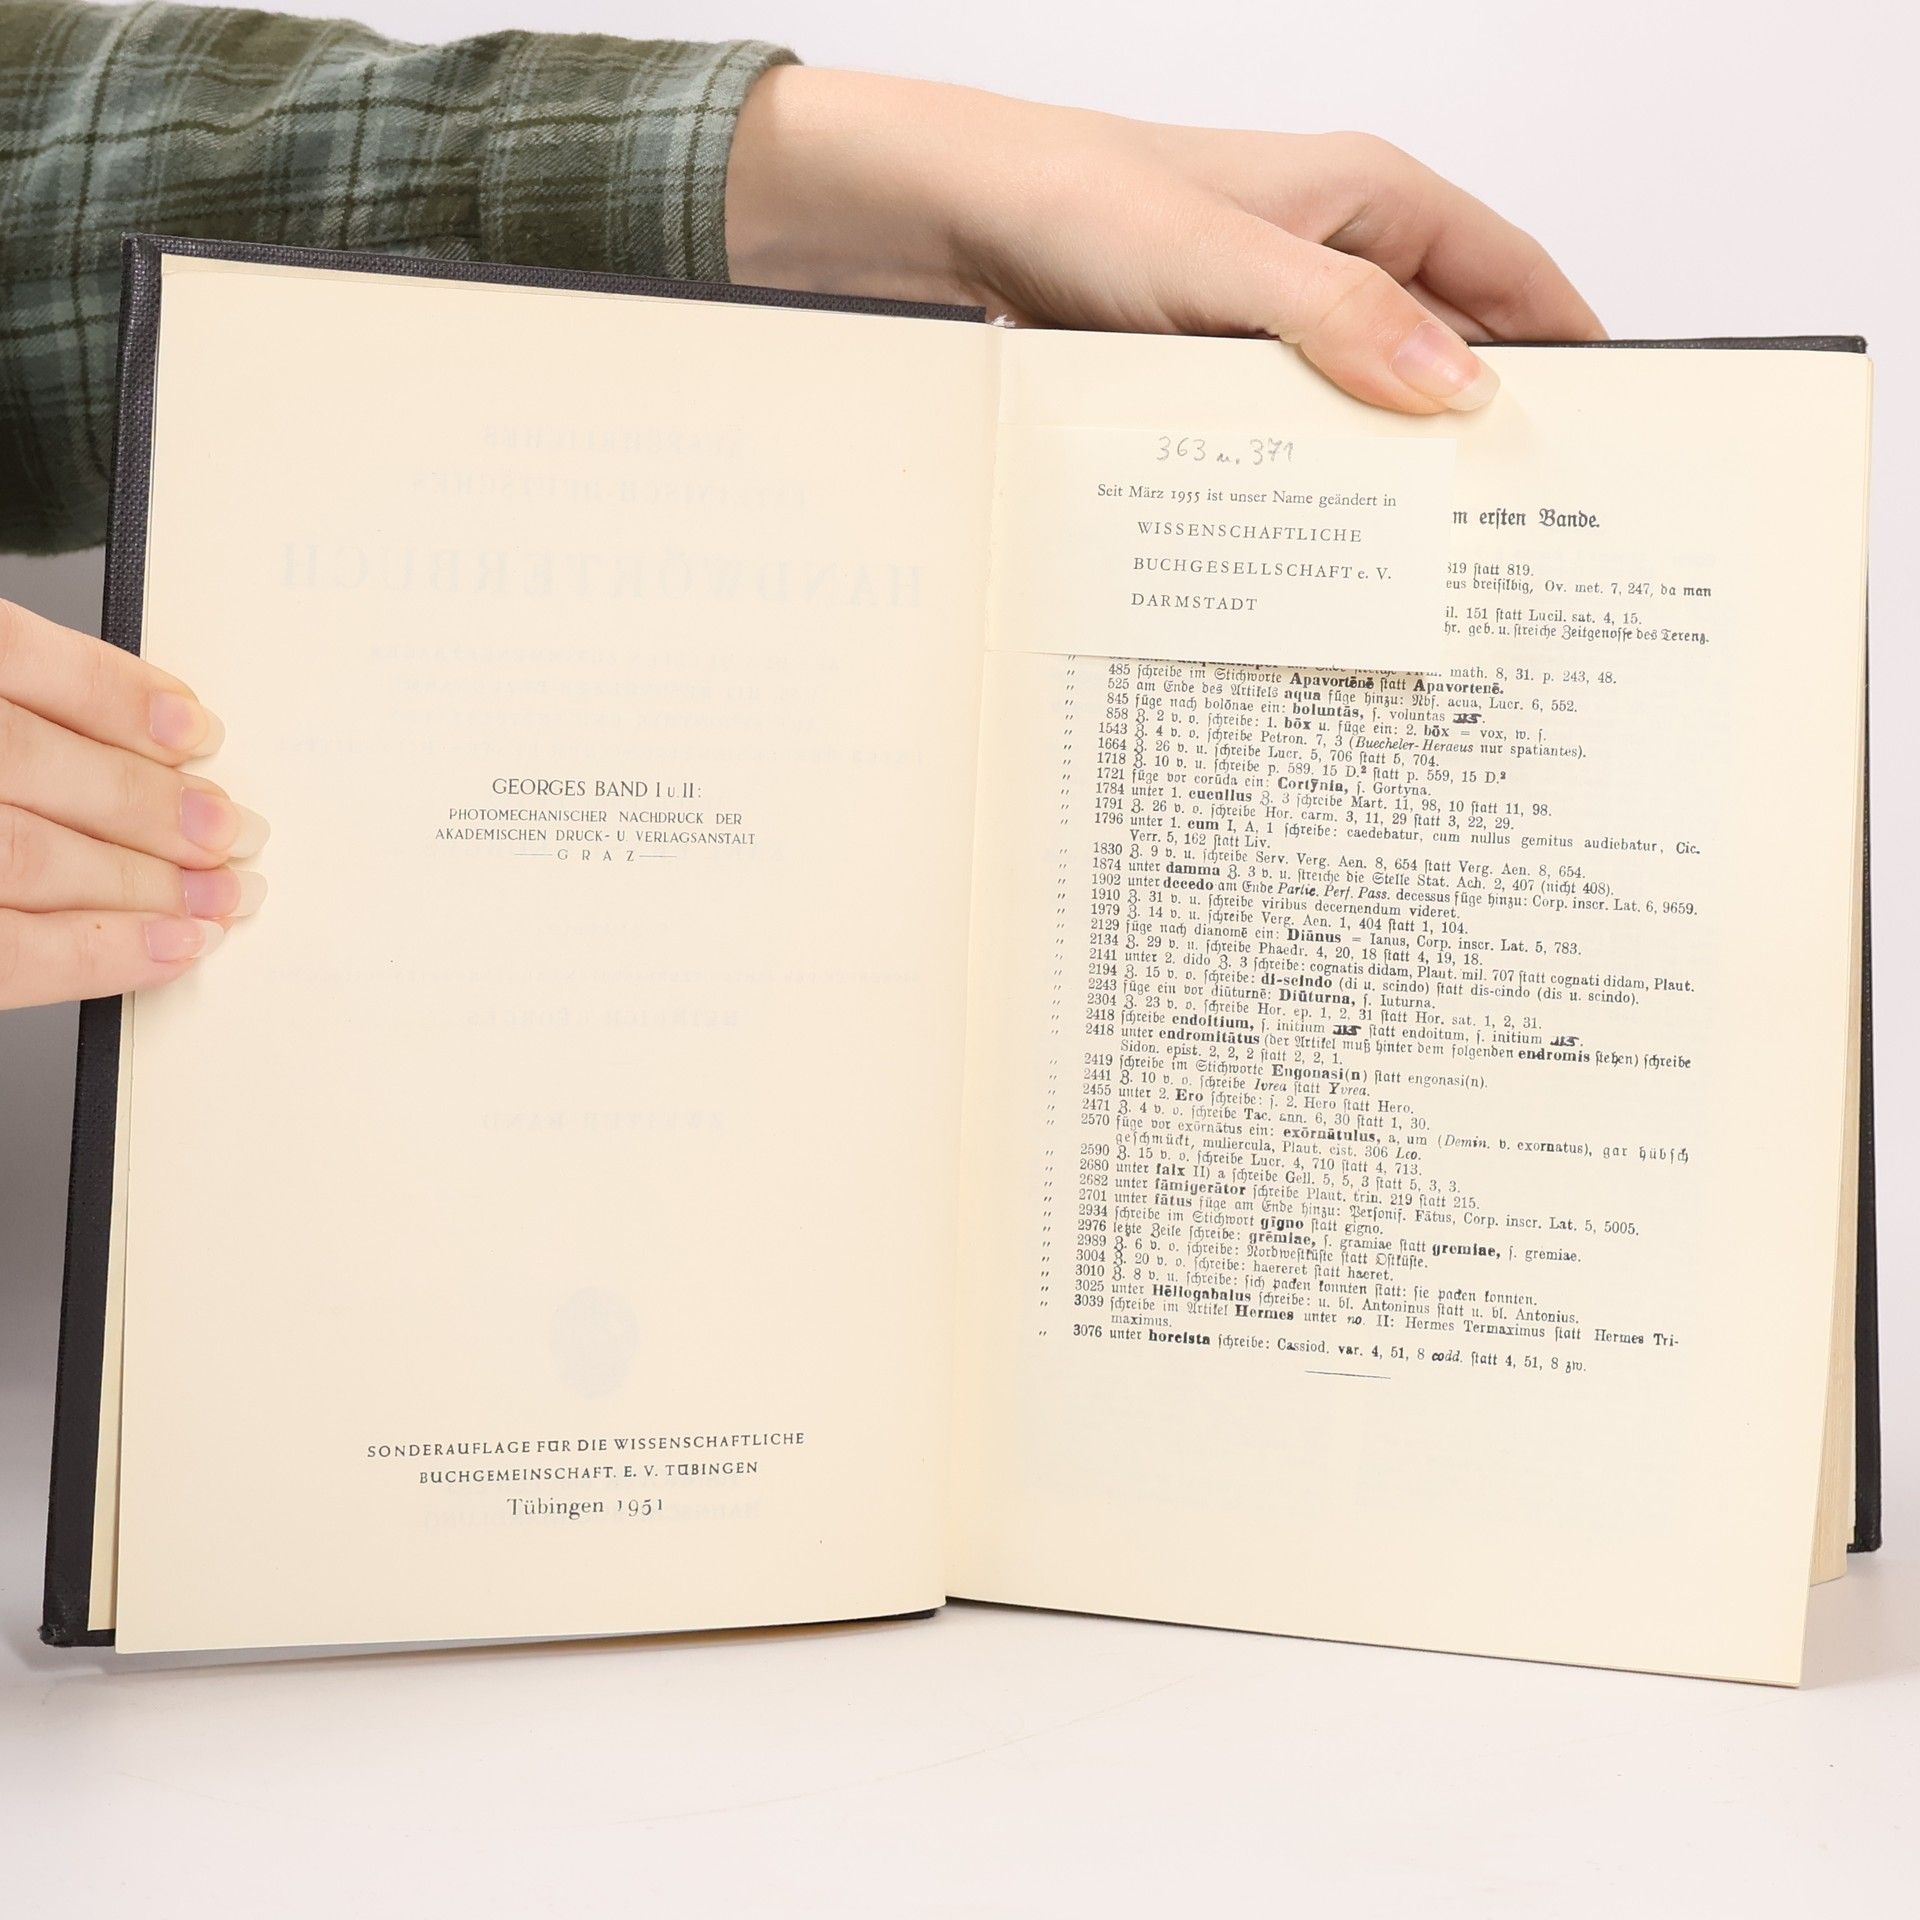 GEORGES BAND I u. II:
PHOTOMECHANISCHER NACHDRUCK DER
AKADEMISCHEN DRUCK- U. VERLAGSANSTALT
GRAZ
SONDERAUFLAGE FÜR DIE WISSENSCHAFTLICHE
BUCHGEMEINSCHAFT. E. V. TÜBINGEN
Tübingen 1951
363 u. 371
Seit März 1955 ist unser Name geändert in
WISSENSCHAFTLICHE
BUCHGESELLSCHAFT e. V.
DARMSTADT
m erſten Bande.
819 ſtatt 819.
eus dreiſilbig, Ov. met. 7, 247, da man
il. 151 ſtatt Lucil. sat. 4, 15.
hr. geb. u. ſtreiche Zeitgenoſſe des Terenz.
math. 8, 31. p. 243, 48.
„ 485 ſchreibe im Stichworte Apavortēnē ſtatt Apavortenē.
„ 525 am Ende des Artikels aqua füge hinzu: Nbf. acua, Lucr. 6, 552.
„ 845 füge nach bolōnae ein: boluntās, ſ. voluntas
„ 858 Z. 2 v. o. ſchreibe: 1. bōx u. füge ein: 2. bōx = vox, w. ſ.
„ 1543 Z. 4 v. o. ſchreibe Petron. 7, 3 (Buecheler-Heraeus nur spatiantes).
„ 1664 Z. 26 v. u. ſchreibe Lucr. 5, 706 ſtatt 5, 704.
„ 1718 Z. 10 v. u. ſchreibe p. 589, 15 D.² ſtatt p. 559, 15 D.²
„ 1721 füge vor corūda ein: Cortȳnia, ſ. Gortyna.
„ 1784 unter 1. cucullus Z. 3 ſchreibe Mart. 11, 98, 10 ſtatt 11, 98.
„ 1791 Z. 26 v. o. ſchreibe Hor. carm. 3, 11, 29 ſtatt 3, 22, 29.
„ 1796 unter 1. cum I, A, 1 ſchreibe: caedebatur, cum nullus gemitus audiebatur, Cic.
Verr. 5, 162 ſtatt Liv.
„ 1830 Z. 9 v. u. ſchreibe Serv. Verg. Aen. 8, 654 ſtatt Verg. Aen. 8, 654.
„ 1874 unter damma Z. 3 v. u. ſtreiche die Stelle Stat. Ach. 2, 407 (nicht 408).
„ 1902 unter decedo am Ende Partic. Perf. Pass. decessus füge hinzu: Corp. inscr. Lat. 6, 9659.
„ 1910 Z. 31 v. u. ſchreibe viribus decernendum videret.
„ 1979 Z. 14 v. u. ſchreibe Verg. Aen. 1, 404 ſtatt 1, 104.
„ 2129 füge nach dianomē ein: Diānus = Ianus, Corp. inscr. Lat. 5, 783.
„ 2134 Z. 29 v. u. ſchreibe Phaedr. 4, 20, 18 ſtatt 4, 19, 18.
„ 2141 unter 2. dido Z. 3 ſchreibe: cognatis didam, Plaut. mil. 707 ſtatt cognati didam, Plaut.
„ 2194 Z. 15 v. o. ſchreibe: di-scindo (di u. scindo) ſtatt dis-cindo (dis u. scindo).
„ 2243 füge ein vor diūturnē: Diūturna, ſ. Iuturna.
„ 2304 Z. 23 v. o. ſchreibe Hor. ep. 1, 2, 31 ſtatt Hor. sat. 1, 2, 31.
„ 2418 ſchreibe endoitium, ſ. initium ſtatt endoitum, ſ. initium
„ 2418 unter endromitātus (der Artikel muß hinter dem folgenden endromis ſtehen) ſchreibe
Sidon. epist. 2, 2, 2 ſtatt 2, 2, 1.
„ 2419 ſchreibe im Stichworte Engonasi(n) ſtatt engonasi(n).
„ 2441 Z. 10 v. o. ſchreibe Ivrea ſtatt Yvrea.
„ 2455 unter 2. Ero ſchreibe: ſ. 2. Hero ſtatt Hero.
„ 2471 Z. 4 v. o. ſchreibe Tac. ann. 6, 30 ſtatt 1, 30.
„ 2570 füge vor exōrnātus ein: exōrnātulus, a, um (Demin. v. exornatus), gar hübſch
geſchmückt, muliercula, Plaut. cist. 306 Leo.
„ 2590 Z. 15 v. o. ſchreibe Lucr. 4, 710 ſtatt 4, 713.
„ 2680 unter falx II) a ſchreibe Gell. 5, 5, 3 ſtatt 5, 3, 3.
„ 2682 unter fāmigerātor ſchreibe Plaut. trin. 219 ſtatt 215.
„ 2701 unter fātus füge am Ende hinzu: Perſonif. Fātus, Corp. inscr. Lat. 5, 5005.
„ 2934 ſchreibe im Stichwort gīgno ſtatt gigno.
„ 2976 letzte Zeile ſchreibe: grēmiae, ſ. gramiae ſtatt gremiae, ſ. gremiae.
„ 2989 Z. 6 v. o. ſchreibe: Nordweſtküſte ſtatt Oſtküſte.
„ 3004 Z. 20 v. o. ſchreibe: haereret ſtatt haeret.
„ 3010 Z. 8 v. u. ſchreibe: ſich packen konnten ſtatt: ſie packen konnten.
„ 3025 unter Hēliogabalus ſchreibe: u. bl. Antoninus ſtatt u. bl. Antonius.
„ 3039 ſchreibe im Artikel Hermes unter no. II: Hermes Termaximus ſtatt Hermes Tri-
maximus.
„ 3076 unter horeista ſchreibe: Cassiod. var. 4, 51, 8 codd. ſtatt 4, 51, 8 zw.